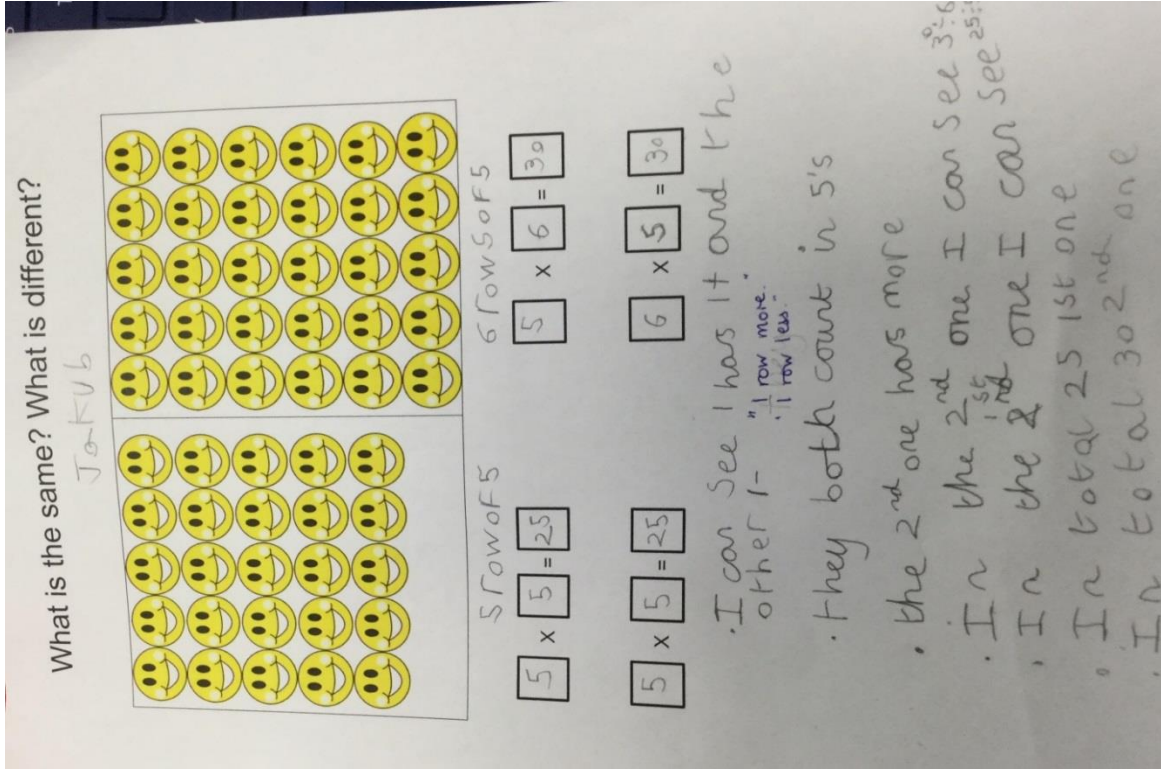 What is the same? What is different?
Jakub
5 row of 5
6 rows of 5
5 x 5 = 25
5 x 6 = 30
5 x 5 = 25
6 x 5 = 30
· I can see 1 has 1t and the
other 1-
"1 row more."
"1 row less."
· they both count in 5's
· the 2nd one has more
· In the 2nd one I can see 30÷6
· In the 1st one I can see 25÷
· In total 25 1st one
· In total 30 2nd one